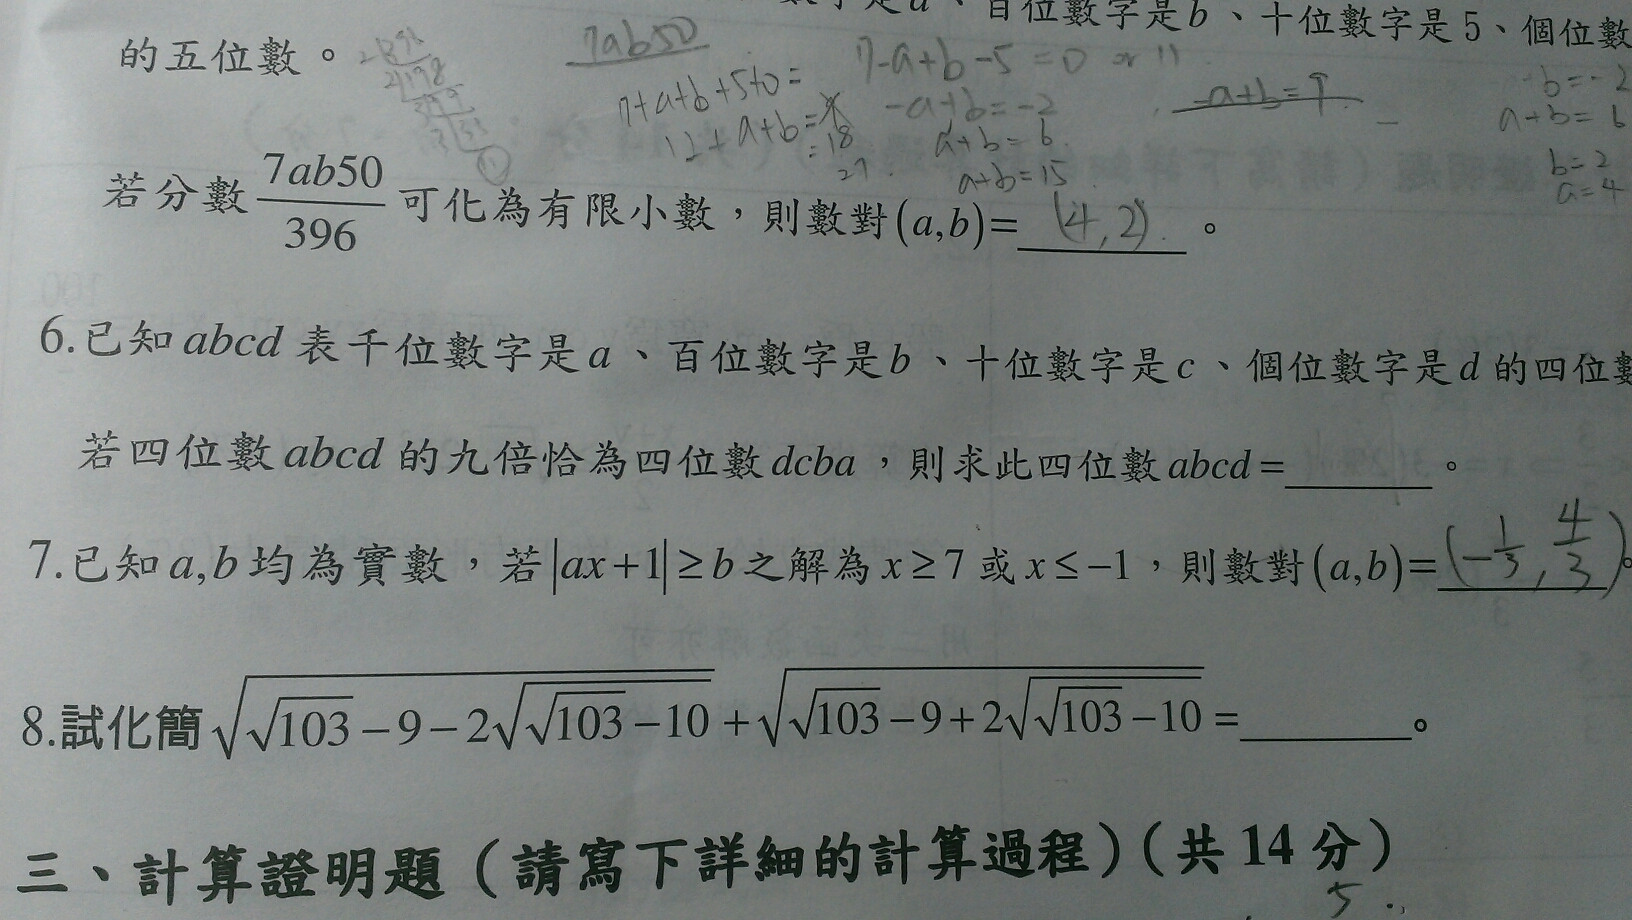 數字是a、百位數字是b、十位數字是5、個位數
的五位數。
7ab50
7+a+b+5+0=
12+a+b=
=18
27
7-a+b-5=0 or 11
-a+b=-2
a+b=6
a+b=15
-a+b=9
-b=-2
a+b=6
b=2
a=4
若分數 7ab50/396 可化為有限小數，則數對(a,b)= (4,2) 。
6.已知abcd 表千位數字是a、百位數字是b、十位數字是c、個位數字是d的四位數
若四位數abcd的九倍恰為四位數dcba，則求此四位數abcd=______。
7.已知a,b均為實數，若|ax+1|≥b之解為x≥7或x≤-1，則數對(a,b)= (-1/3, 4/3)。
8.試化簡√(√103-9-2√(√103-10))+√(√103-9+2√(√103-10))=______。
三、計算證明題（請寫下詳細的計算過程）（共14分）
5